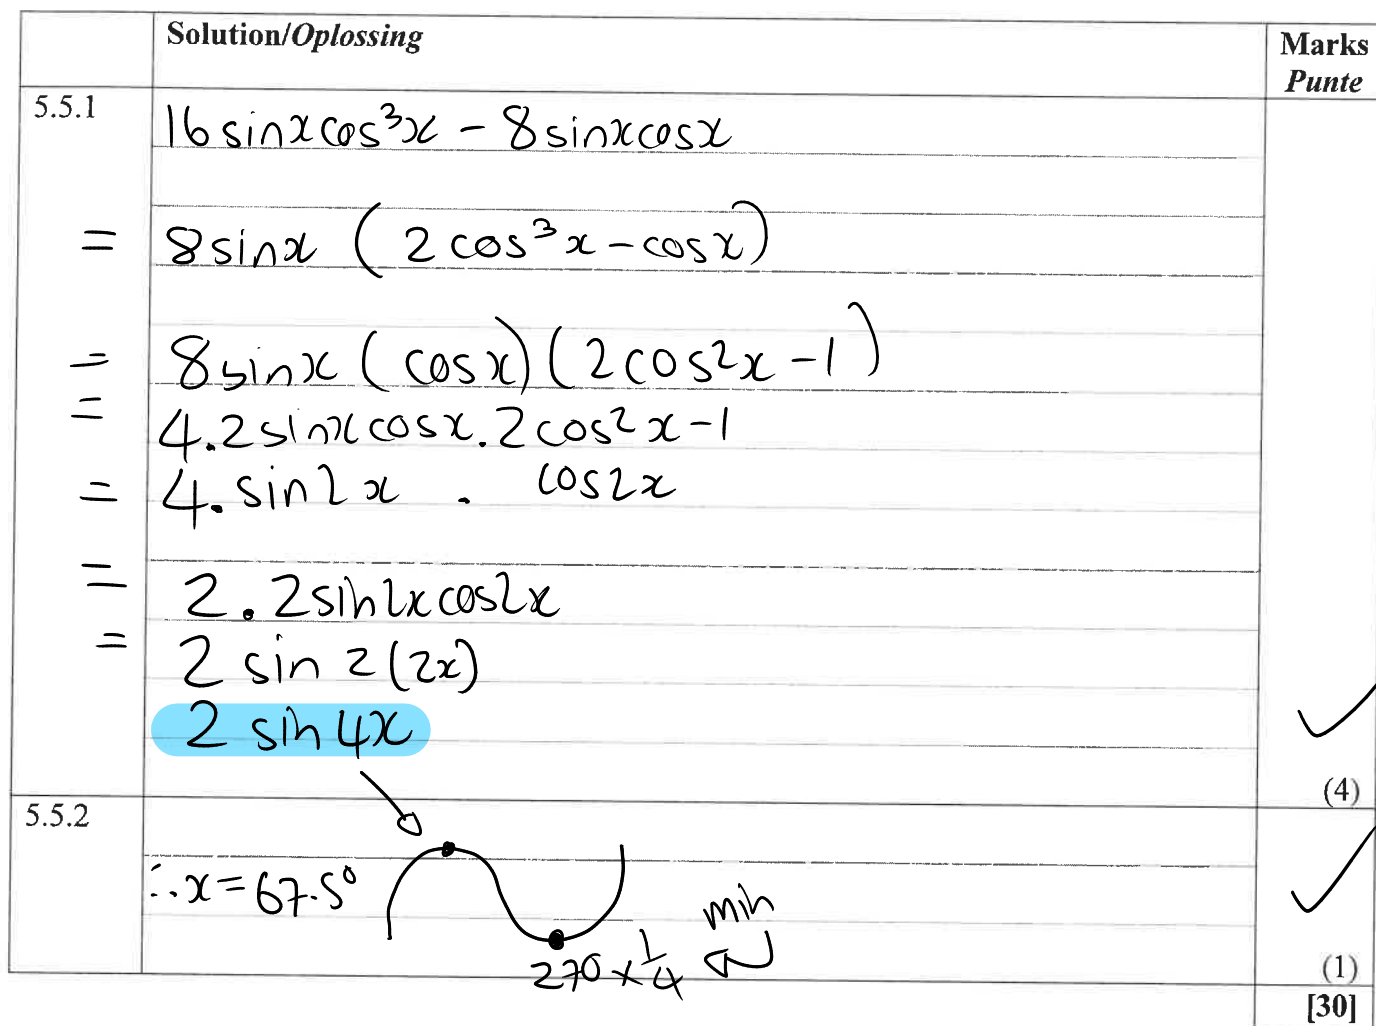 Solution/Oplossing
Marks
Punte
5.5.1
16 sinx cos³x - 8 sinxcosx
= 8 sinx ( 2 cos³x - cosx)
= 8 sinx ( cosx) ( 2cos²x - 1 )
= 4.2 sinxcosx. 2cos²x-1
= 4. sin2x . cos2x
= 2. 2sin2xcos2x
= 2 sin 2(2x)
2 sin 4x
(4)
5.5.2
∴ x = 67.5°
min
270 × 1/4
(1)
[30]